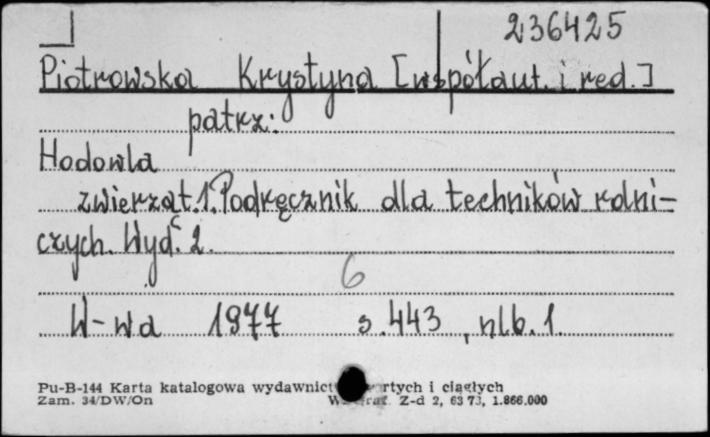 236425
Piotrowska Krystyna [współaut. i red.]
patrz:
Hodowla
zwierząt. 1. Podręcznik dla techników rolni-
czych. Wyd. 2.
6
W-wa 1977 s. 443, nlb. 1.
Pu-B-144 Karta katalogowa wydawnict rtych i ciągłych
Zam. 34/DW/On Z-d 2, 63 73, 1.866.000